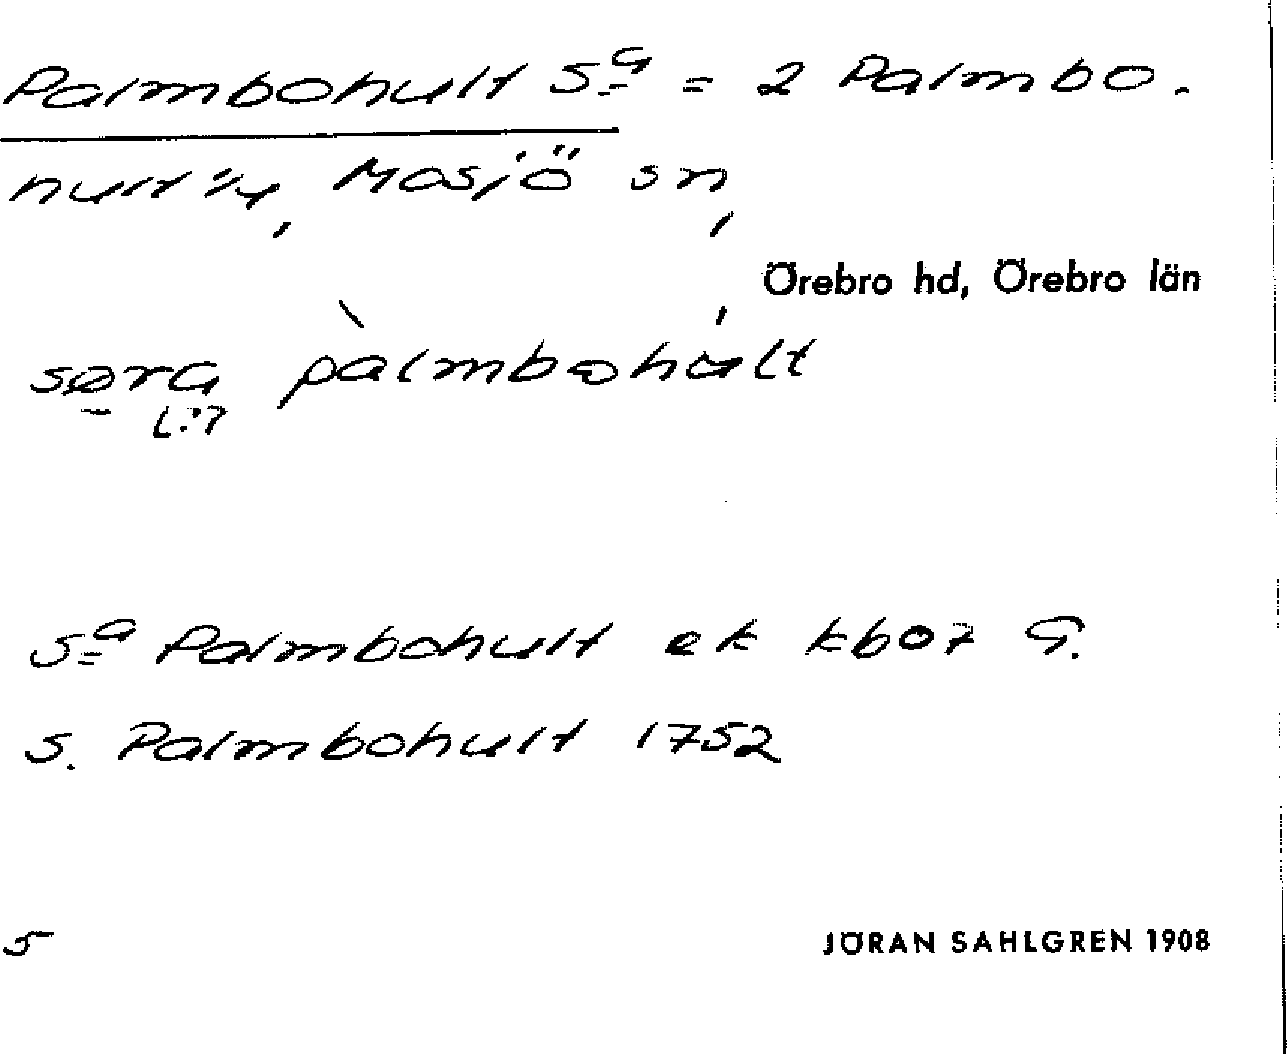 Palmbohult Sa = 2 Palmbo.
hult 1/4, Mosjö sn,
Örebro hd, Örebro län
søra pàlmbohult
[:]
Sa Palmbohult ek kb07 G.
S. Palmbohult 1752
5
JÖRAN SAHLGREN 1908